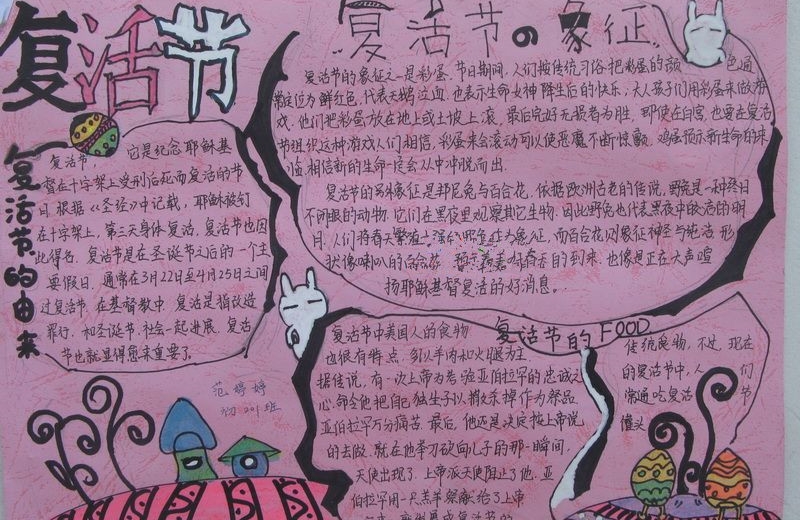 复活节
复活节的由来
复活节，它是纪念耶稣基
督在十字架上受刑治死而复活的节
日.根据《圣经》中记载，耶稣被钉
在十字架上，第三天身体复活，复活节也因
此得名。复活节是在圣诞节之后的一个主
要假日.通常在3月22日至4月25日之间
过复活节.在基督教中.复活是指改造
罪行.和圣诞节.社会一起进展.复活
节也就显得愈来重要了。
范婷婷
初201班
"复活节の象征"
复活节的象征之一是彩蛋.节日期间，人们按传统习俗.把彩蛋的颜色通
常定位为鲜红色，代表天鹅泣血.也表示生命女神降生后的快乐；大人孩子们用彩蛋来做游
戏.他们把彩蛋放在地上或土坡上滚，最后完好无损者为胜，即使在白宫，也要在复活
节组织这种游戏人们相信，彩蛋来会滚动可以使恶魔不断惊颤，鸡蛋预示新生命的来
临，相信新的生命一定会从中冲脱而出.
复活节的另外象征是邦尼兔与百合花，依据欧洲古老的传说，野兔是一种终日
不闭眼的动物.它们在黑夜里观察其它生物.因此野兔也代表黑夜中皎洁的明
月.人们将春天繁殖力强的野兔作为象征，而百合花则象征神圣与纯洁.形
状像喇叭的百合花 的到来.也像是正在大声喧
扬耶稣基督复活的好消息。
复活节的FOOD
复活节中美国人的食物
也很有特点，多以羊肉和火腿为主
据传说，有一次上帝为考验亚伯拉罕的忠诚之
心.命令他把自己独生子以撒杀掉作为祭品
亚伯拉罕万分痛苦.最后，他还是决定按上帝说
的去做.就在他举刀砍向儿子的那一瞬间，
天使出现了.上帝派天使阻止了他.亚
伯拉罕用一只羔羊祭献给了上帝
传统食物，不过，现在
的复活节中，人们
常通吃复活节
馒头